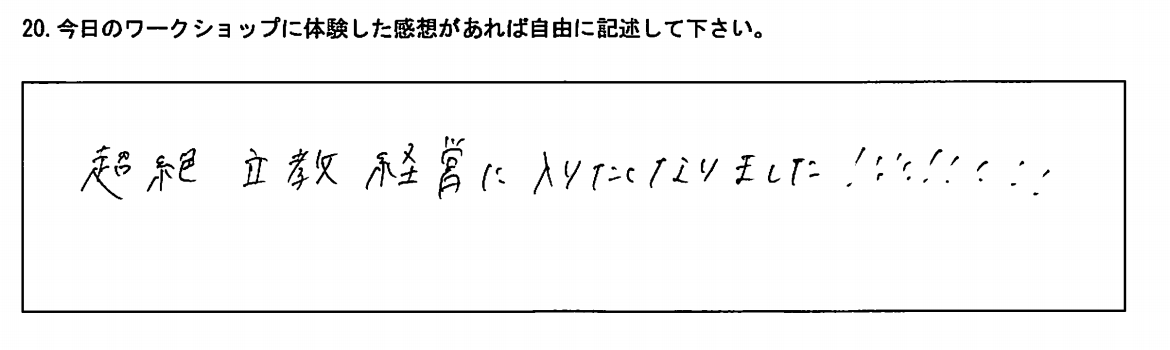 20. 今日のワークショップに体験した感想があれば自由に記述して下さい。
超絶 立教 経営に 入りたくなりました!!!!!!!!!